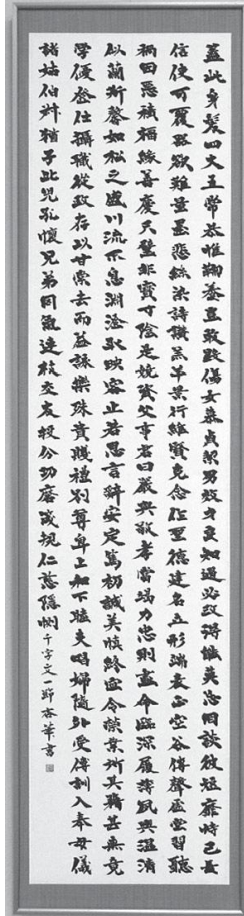 蓋此身髮四大五常恭惟鞠養豈敢毀傷女慕貞潔男效才良知過必改得能莫忘罔談彼短靡恃己長
信使可覆器欲難量墨悲絲染詩讚羔羊景行維賢克念作聖德建名立形端表正空谷傳聲虛堂習聽
禍因惡積福緣善慶尺璧非寶寸陰是競資父事君曰嚴與敬孝當竭力忠則盡命臨深履薄夙興溫凊
似蘭斯馨如松之盛川流不息淵澄取映容止若思言辭安定篤初誠美慎終宜令榮業所基籍甚無竟
學優登仕攝職從政存以甘棠去而益詠樂殊貴賤禮別尊卑上和下睦夫唱婦隨外受傅訓入奉母儀
諸姑伯叔猶子比兒孔懷兄弟同氣連枝交友投分切磨箴規仁慈隱惻 千字文一節 杏華書